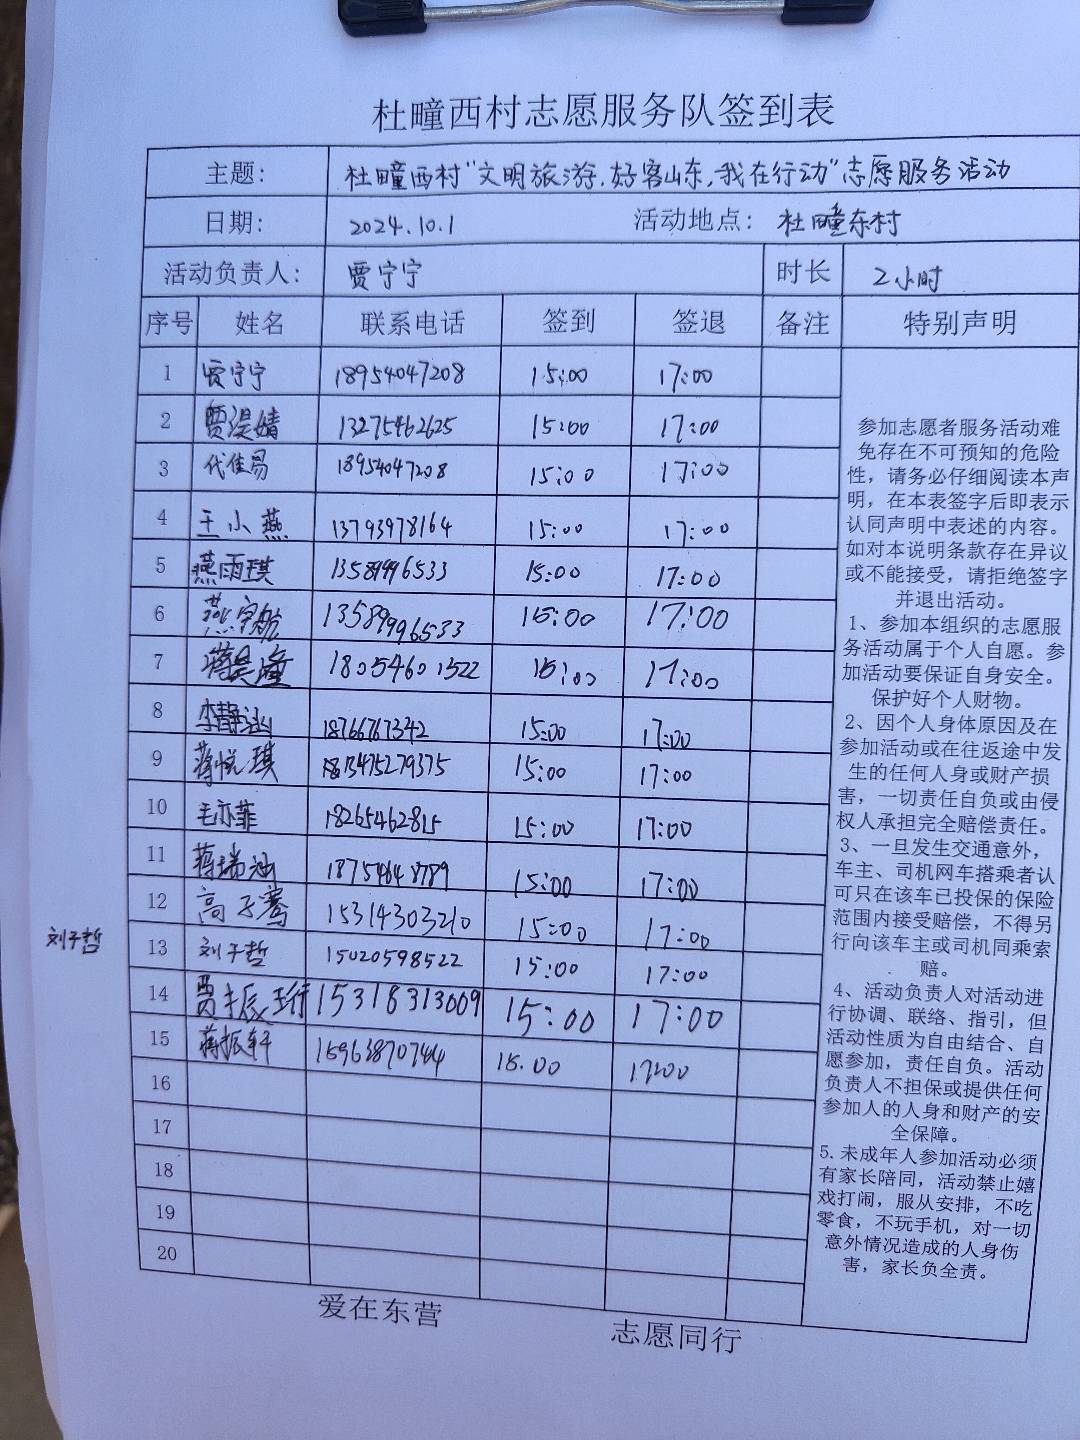 杜疃西村志愿服务队签到表
主题： 杜疃西村“文明旅游,好客山东,我在行动”志愿服务活动
日期： 2024.10.1 活动地点： 杜疃东村
活动负责人： 贾宁宁 时长 2小时
序号 姓名 联系电话 签到 签退 备注 特别声明
1 贾宁宁 18954047208 15:00 17:00
2 贾湜婧 13275462625 15:00 17:00
3 代佳易 18954047208 15:00 17:00
4 王小燕 13793978164 15:00 17:00
5 燕雨琪 13589996533 15:00 17:00
6 燕宇航 13589996533 15:00 17:00
7 蒋昊潼 18054601522 15:00 17:00
8 李静涵 18766767342 15:00 17:00
9 蒋悦琪 13475279375 15:00 17:00
10 毛亦菲 18265462815 15:00 17:00
11 蒋瑞涵 18754648789 15:00 17:00
12 高子骞 15314303210 15:00 17:00
刘于哲
13 刘于哲 15020598522 15:00 17:00
14 贾振珩 15318313009 15:00 17:00
15 蒋振轩 15963870744 15.00 17:00
16
17
18
19
20
参加志愿者服务活动难
免存在不可预知的危险
性，请务必仔细阅读本声
明，在本表签字后即表示
认同声明中表述的内容。
如对本说明条款存在异议
或不能接受，请拒绝签字
并退出活动。
1、参加本组织的志愿服
务活动属于个人自愿。参
加活动要保证自身安全。
保护好个人财物。
2、因个人身体原因及在
参加活动或在往返途中发
生的任何人身或财产损
害，一切责任自负或由侵
权人承担完全赔偿责任。
3、一旦发生交通意外，
车主、司机网车搭乘者认
可只在该车已投保的保险
范围内接受赔偿，不得另
行向该车主或司机同乘索
赔。
4、活动负责人对活动进
行协调、联络、指引，但
活动性质为自由结合、自
愿参加，责任自负。活动
负责人不担保或提供任何
参加人的人身和财产的安
全保障。
5.未成年人参加活动必须
有家长陪同，活动禁止嬉
戏打闹，服从安排，不吃
零食，不玩手机，对一切
意外情况造成的人身伤
害，家长负全责。
爱在东营 志愿同行